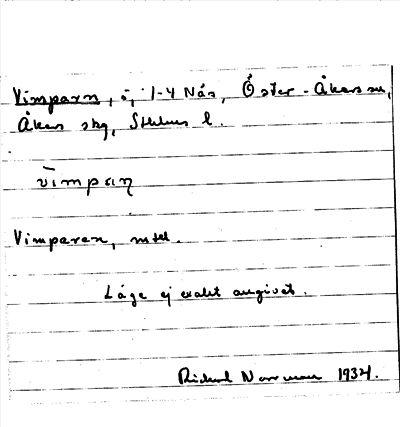 Vimparn, ö, 1-4 Näs, Öster-Åkers sn,
Åkers skg, Sthlms l.
vimpaɳ
Vimparen, mtl.
Läge ej exakt angivet.
Rickard Norrman 1934.